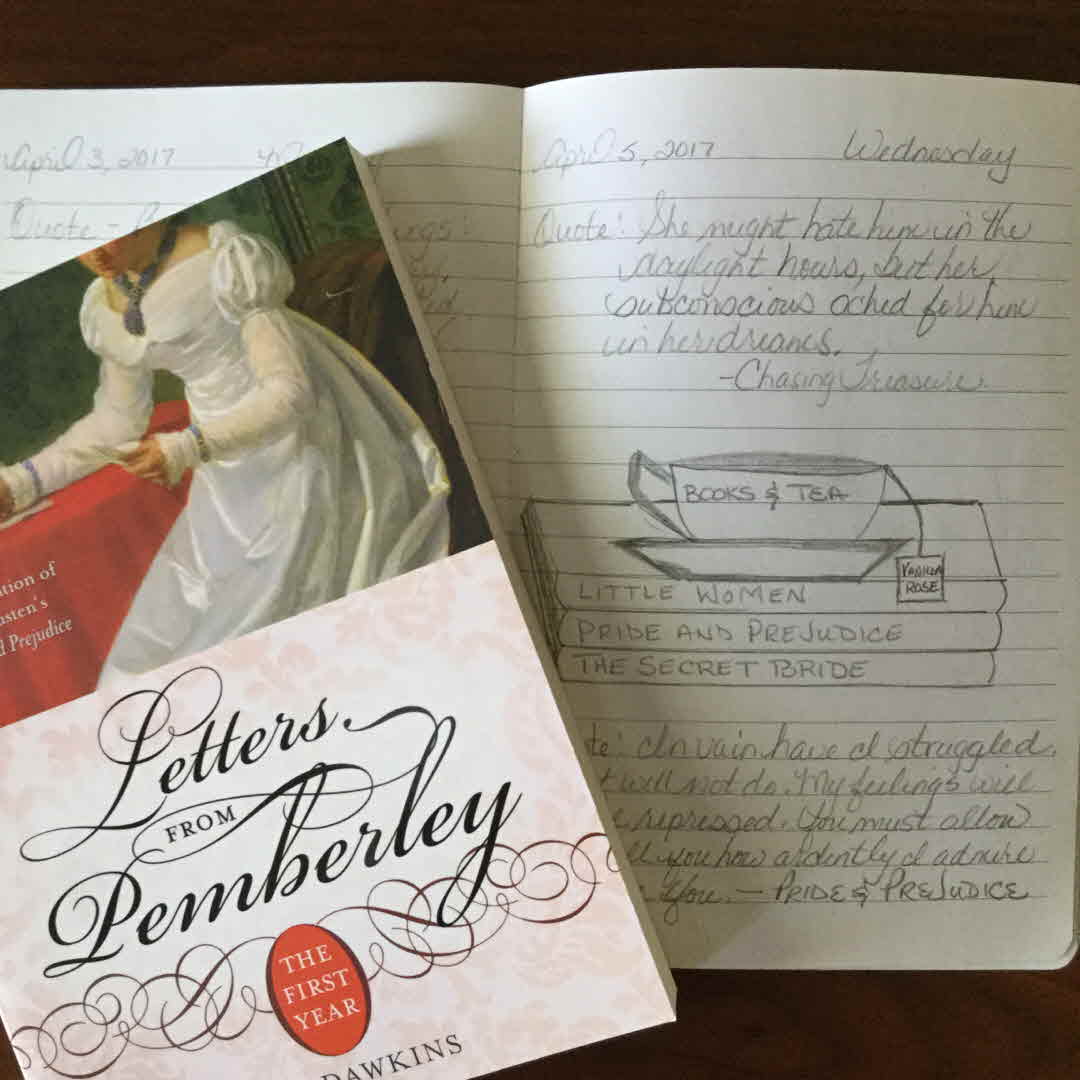 April 3, 2017
Quote -
April 5, 2017 Wednesday
Quote: She might hate him in the
daylight hours, but her
subconscious ached for him
in her dreams.
-Chasing Treasure.
BOOKS & TEA
VANILLA
ROSE
LITTLE WOMEN
PRIDE AND PREJUDICE
THE SECRET BRIDE
te: In vain have I struggled.
t will not do. My feelings will
repressed. You must allow
ll you how ardently I admire
You. - PRIDE & PREJUDICE
tion of
usten's
d Prejudice
Letters
FROM
Pemberley
THE
FIRST
YEAR
DAWKINS